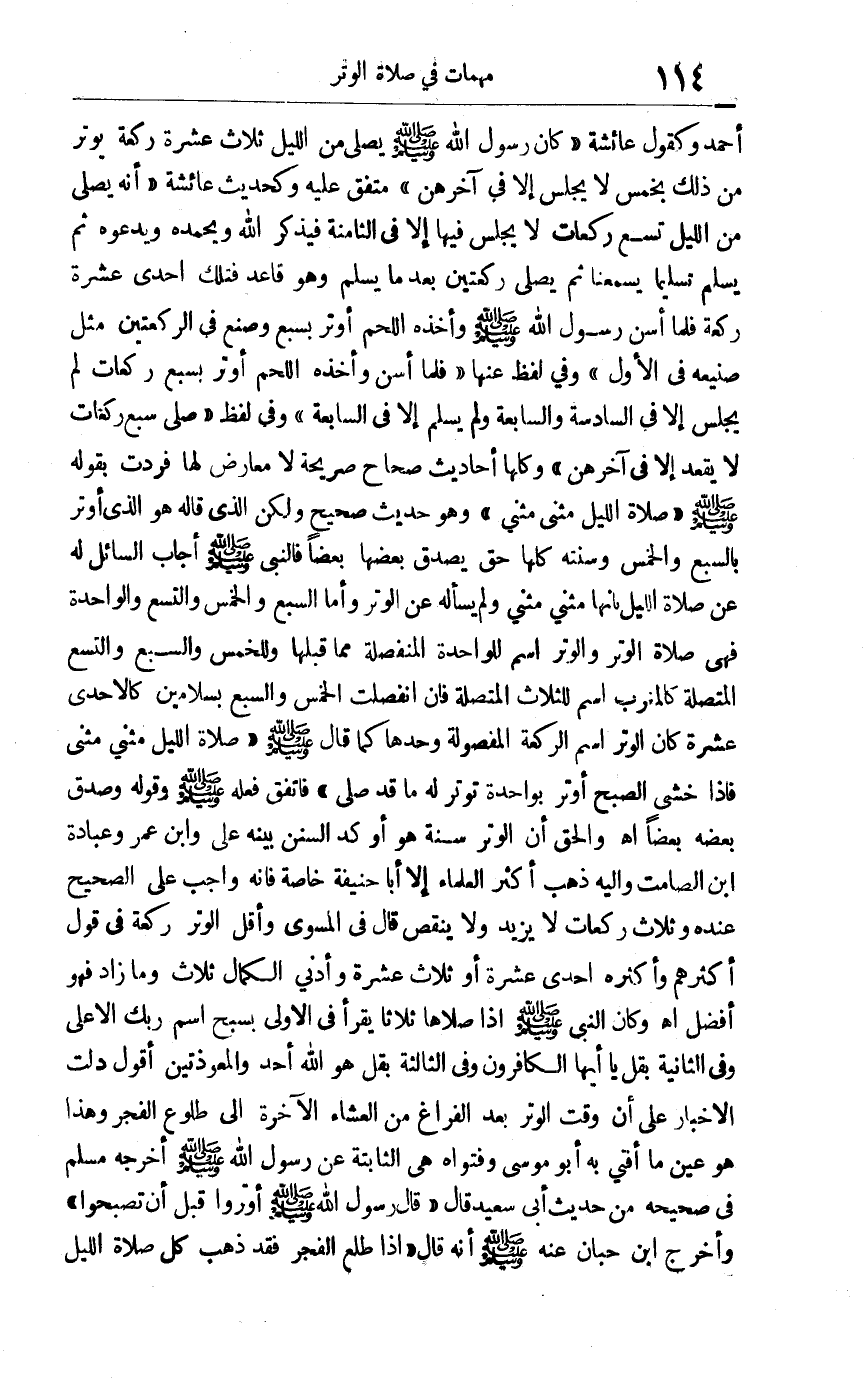 ١١٤
مهمات في صلاة الوتر
أحمد وكقول عائشة « كان رسول الله ﷺ يصلى من الليل ثلاث عشرة ركعة يوتر
من ذلك بخمس لا يجلس إلا في آخرهن » متفق عليه وكحديث عائشة « أنه يصلى
من الليل تسع ركعات لا يجلس فيها إلا فى الثامنة فيذكر الله ويحمده ويدعوه ثم
يسلم تسليما يسمعنا ثم يصلى ركعتين بعد ما يسلم وهو قاعد فتلك احدى عشرة
ركعة فلما أسن رسول الله ﷺ وأخذه اللحم أوتر بسبع وصنع في الركعتين مثل
صنيعه فى الأول » وفي لفظ عنها « فلما أسن وأخذه اللحم أوتر بسبع ركعات لم
يجلس إلا في السادسة والسابعة ولم يسلم إلا فى السابعة » وفى لفظ « صلى سبع ركعات
لا يقعد إلا فى آخرهن » وكلها أحاديث صحاح صريحة لا معارض لها فردت بقوله
ﷺ « صلاة الليل مثنى مثني » وهو حديث صحيح ولكن الذى قاله هو الذى أوتر
بالسبع والخمس وسنته كلها حق يصدق بعضها بعضاً فالنبى ﷺ أجاب السائل له
عن صلاة الليل بأنها مثني مثني ولم يسأله عن الوتر وأما السبع والخمس والتسع والواحدة
فهى صلاة الوتر والوتر اسم للواحدة المنفصلة مما قبلها وللخمس والسبع والتسع
المتصلة كالمغرب اسم للثلاث المتصلة فان انفصلت الخمس والسبع بسلامين كالاحدى
عشرة كان الوتر اسم الركعة المفصولة وحدها كما قال ﷺ « صلاة الليل مثني مثنى
فاذا خشى الصبح أوتر بواحدة توتر له ما قد صلى » فاتفق فعله ﷺ وقوله وصدق
بعضه بعضاً اه والحق أن الوتر سنة هو أوكد السنن بينه على وابن عمر وعبادة
ابن الصامت واليه ذهب أكثر العلماء إلا أبا حنيفة خاصة فانه واجب على الصحيح
عنده وثلاث ركعات لا يزيد ولا ينقص قال فى المسوى وأقل الوتر ركعة فى قول
أكثرهم وأكثره احدى عشرة أو ثلاث عشرة وأدني الكمال ثلاث وما زاد فهو
أفضل اه وكان النبي ﷺ اذا صلاها ثلاثا يقرأ فى الاولى بسبح اسم ربك الاعلى
وفى الثانية بقل يا أيها الكافرون وفى الثالثة بقل هو الله أحد والمعوذتين أقول دلت
الاخبار على أن وقت الوتر بعد الفراغ من العشاء الآخرة الى طلوع الفجر وهذا
هو عين ما أفتي به أبو موسى وفتواه هى الثابتة عن رسول الله ﷺ أخرجه مسلم
فى صحيحه من حديث أبى سعيد قال « قال رسول الله ﷺ أوتروا قبل أن تصبحوا»
وأخرج ابن حبان عنه ﷺ أنه قال « اذا طلع الفجر فقد ذهب كل صلاة الليل